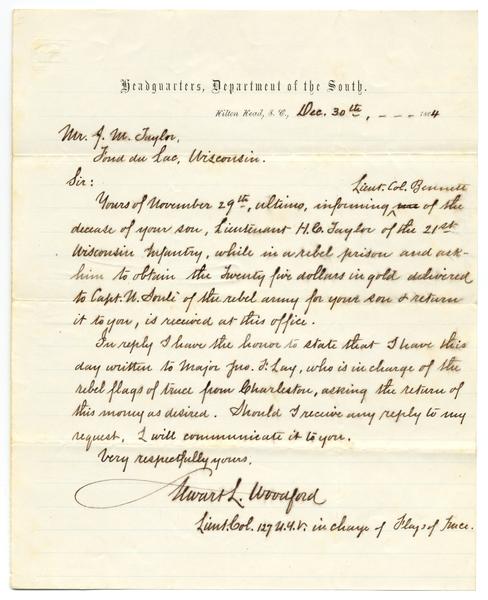 Headquarters, Department of the South.
Hilton Head, S. C., Dec. 30th, - - - 1864
Mr. J. M. Taylor,
Fond du Lac, Wisconsin.
Sir:
Lieut. Col. Bennett
Yours of November 29th, ultimo, informing me of the
decease of your son, Lieutenant H. C. Taylor of the 21st
Wisconsin Infantry, while in a rebel prison and ask-
him to obtain the Twenty five dollars in gold delivered
to Capt. W. Soulé of the rebel army for your son & return
it to you, is received at this office.
In reply I have the honor to state that I have this
day written to Major Jno. F. Lay, who is in charge of the
rebel flags of truce from Charleston, asking the return of
this money as desired. Should I receive any reply to my
request, I will communicate it to you.
Very respectfully yours,
Stewart L. Woodford
Lieut. Col. 127 N.Y.V. in charge of Flags of Truce.